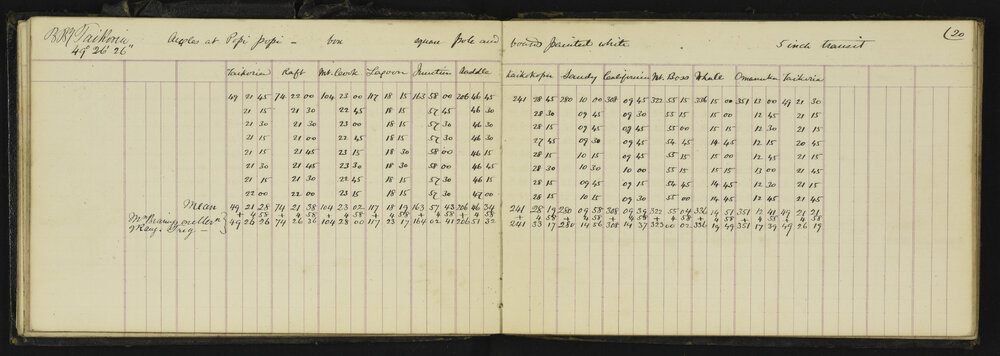 Taikoria Angles at Pipi pipi - box square pole and boards painted white 5 inch transit (20
49° 26' 26"
Taikoria Raft Mt. Cook Lagoon Junction Saddle Sandy Californien Mt. Boss Whale Omanuka Taikoria
49 21 45 74 22 00 104 23 00 117 18 15 163 58 00 206 46 45 241 28 45 280 10 00 308 09 45 322 55 15 336 15 00 351 13 00 49 21 30
21 15 21 30 22 45 18 15 57 45 46 30 28 30 09 45 09 30 55 15 15 00 12 45 21 15
21 30 21 30 23 00 18 15 57 30 46 30 28 15 09 45 09 45 55 00 15 15 12 30 21 15
21 15 21 00 22 45 18 15 57 30 46 30 27 45 09 30 09 45 54 45 14 45 12 30 20 45
21 15 21 45 23 15 18 30 58 00 46 15 28 15 10 15 09 45 55 15 15 00 12 45 21 15
21 30 21 45 23 30 18 30 58 00 46 45 28 30 10 30 10 00 55 15 15 15 13 00 21 45
21 15 21 30 22 45 18 15 57 30 46 15 28 15 09 45 09 15 54 45 14 45 12 30 21 15
22 00 22 00 23 15 18 15 57 30 47 00 28 15 10 15 09 30 55 00 14 45 12 15 21 45
Mean 49 21 28 74 21 38 104 23 02 117 18 19 163 57 43 206 46 34 241 28 19 280 09 58 308 09 39 322 55 04 336 14 51 351 12 41 49 21 21
+ 4 58 + 4 58 + 4 58 + 4 58 + 4 58 + 4 58 + 4 58 + 4 58 + 4 58 + 4 58 + 4 58 + 4 58 + 4 58
Bearing 49 26 26 74 26 36 104 28 00 117 23 17 164 02 41 206 51 32 241 33 17 280 14 56 308 14 37 323 00 02 336 19 49 351 17 39 49 26 19
Trig -